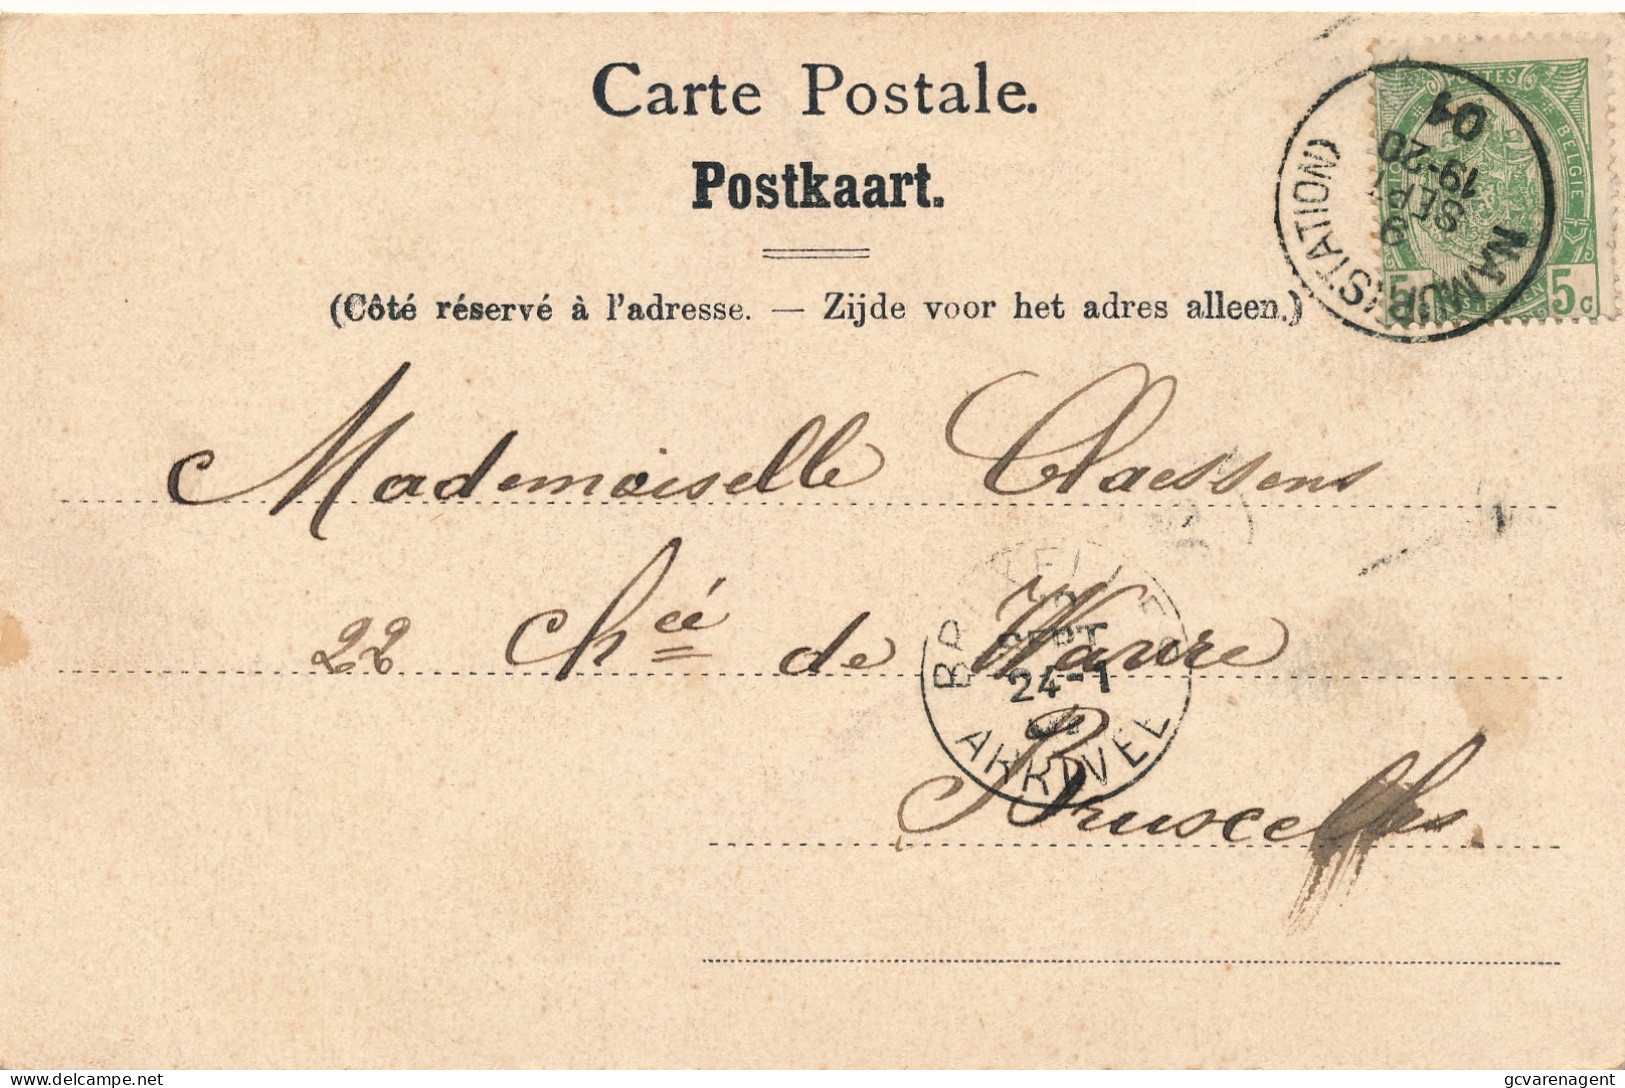 Carte Postale.
Postkaart.
(Côté réservé à l'adresse. — Zijde voor het adres alleen.)
POSTES
BELGIE
5 5c
NAMUR (STATION)
9
SEPT
19-20
01
Mademoiselle Claessens
22 Chée de Wavre
Bruxcelles
SEPT
24-1
ARRIVEE
delcampe.net
gcvarenagent